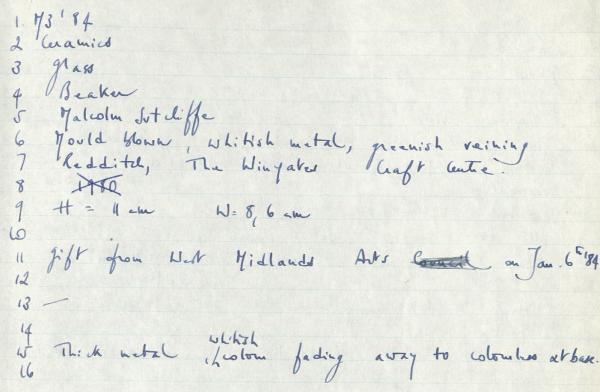 1 M3'84
2 Ceramics
3 glass
4 Beaker
5 Malcolm Sutcliffe
6 Mould blown, whitish metal, greenish veining
7 Redditch, The Winyates Craft Centre.
8 1980
9 H = 11 cm W = 8,6 cm
10
11 gift from West Midlands Arts Council on Jan. 6th '84
12
13 —
14
15 Thick metal whitish in colour fading away to colourless at base.
16